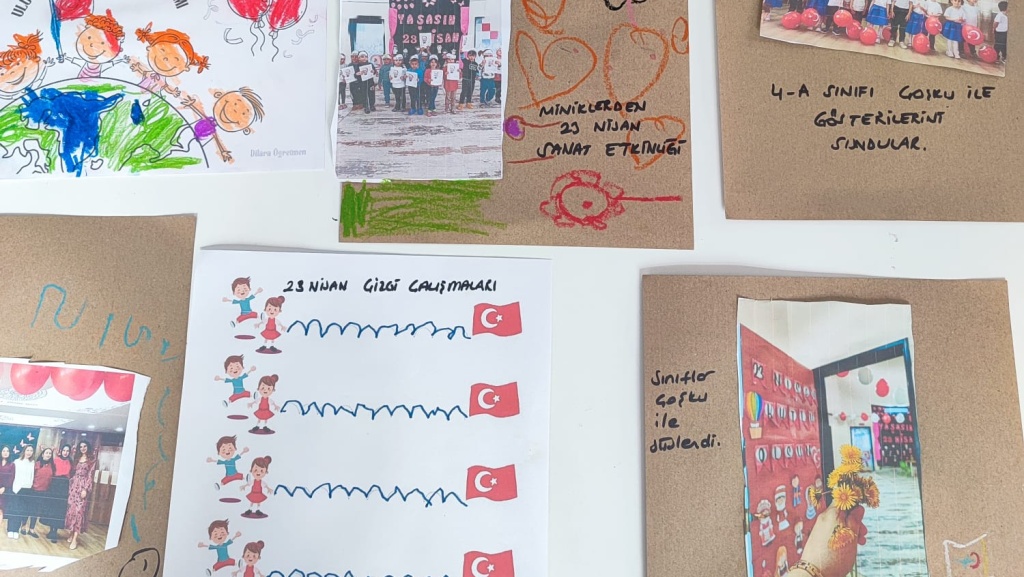 YAŞASIN
23 NİSAN
MİNİKLERDEN
23 NİSAN
SANAT ETKİNLİĞİ
4-A SINIFI COŞKU İLE
GÖSTERİLERİNİ
SUNDULAR.
Dilara Öğretmen
23 NİSAN ÇİZGİ ÇALIŞMALARI
Sınıflar
Coşku
ile
süslendi.
YAŞASIN
23 NİSAN